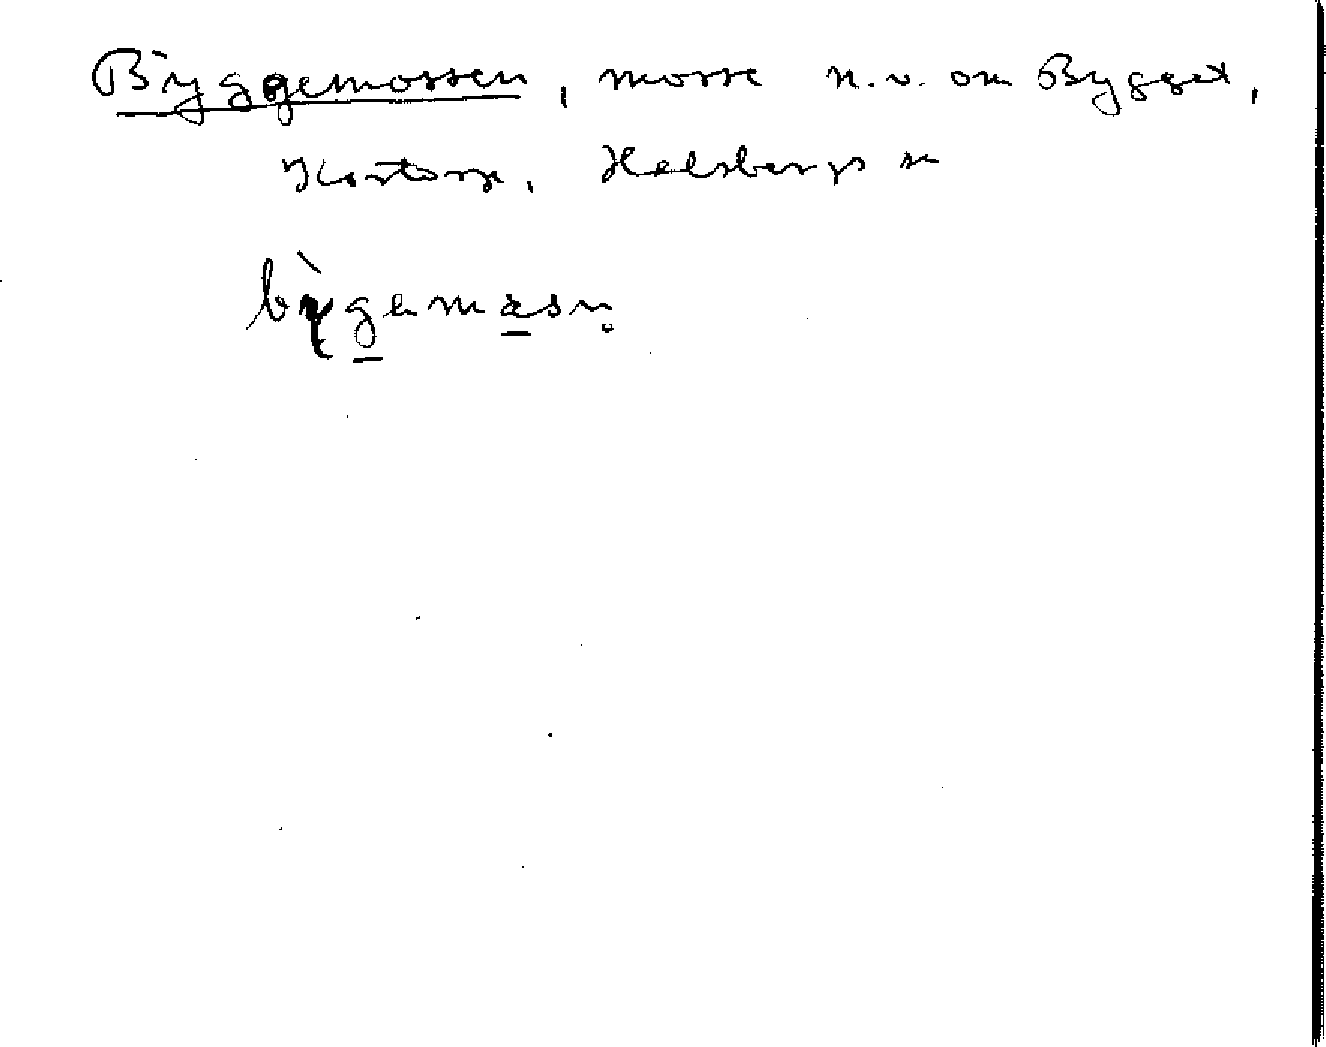 Byggemossen, mosse n.v. om Bygget,
Hertorp, Halsbergs sn
bỳgemasn̥